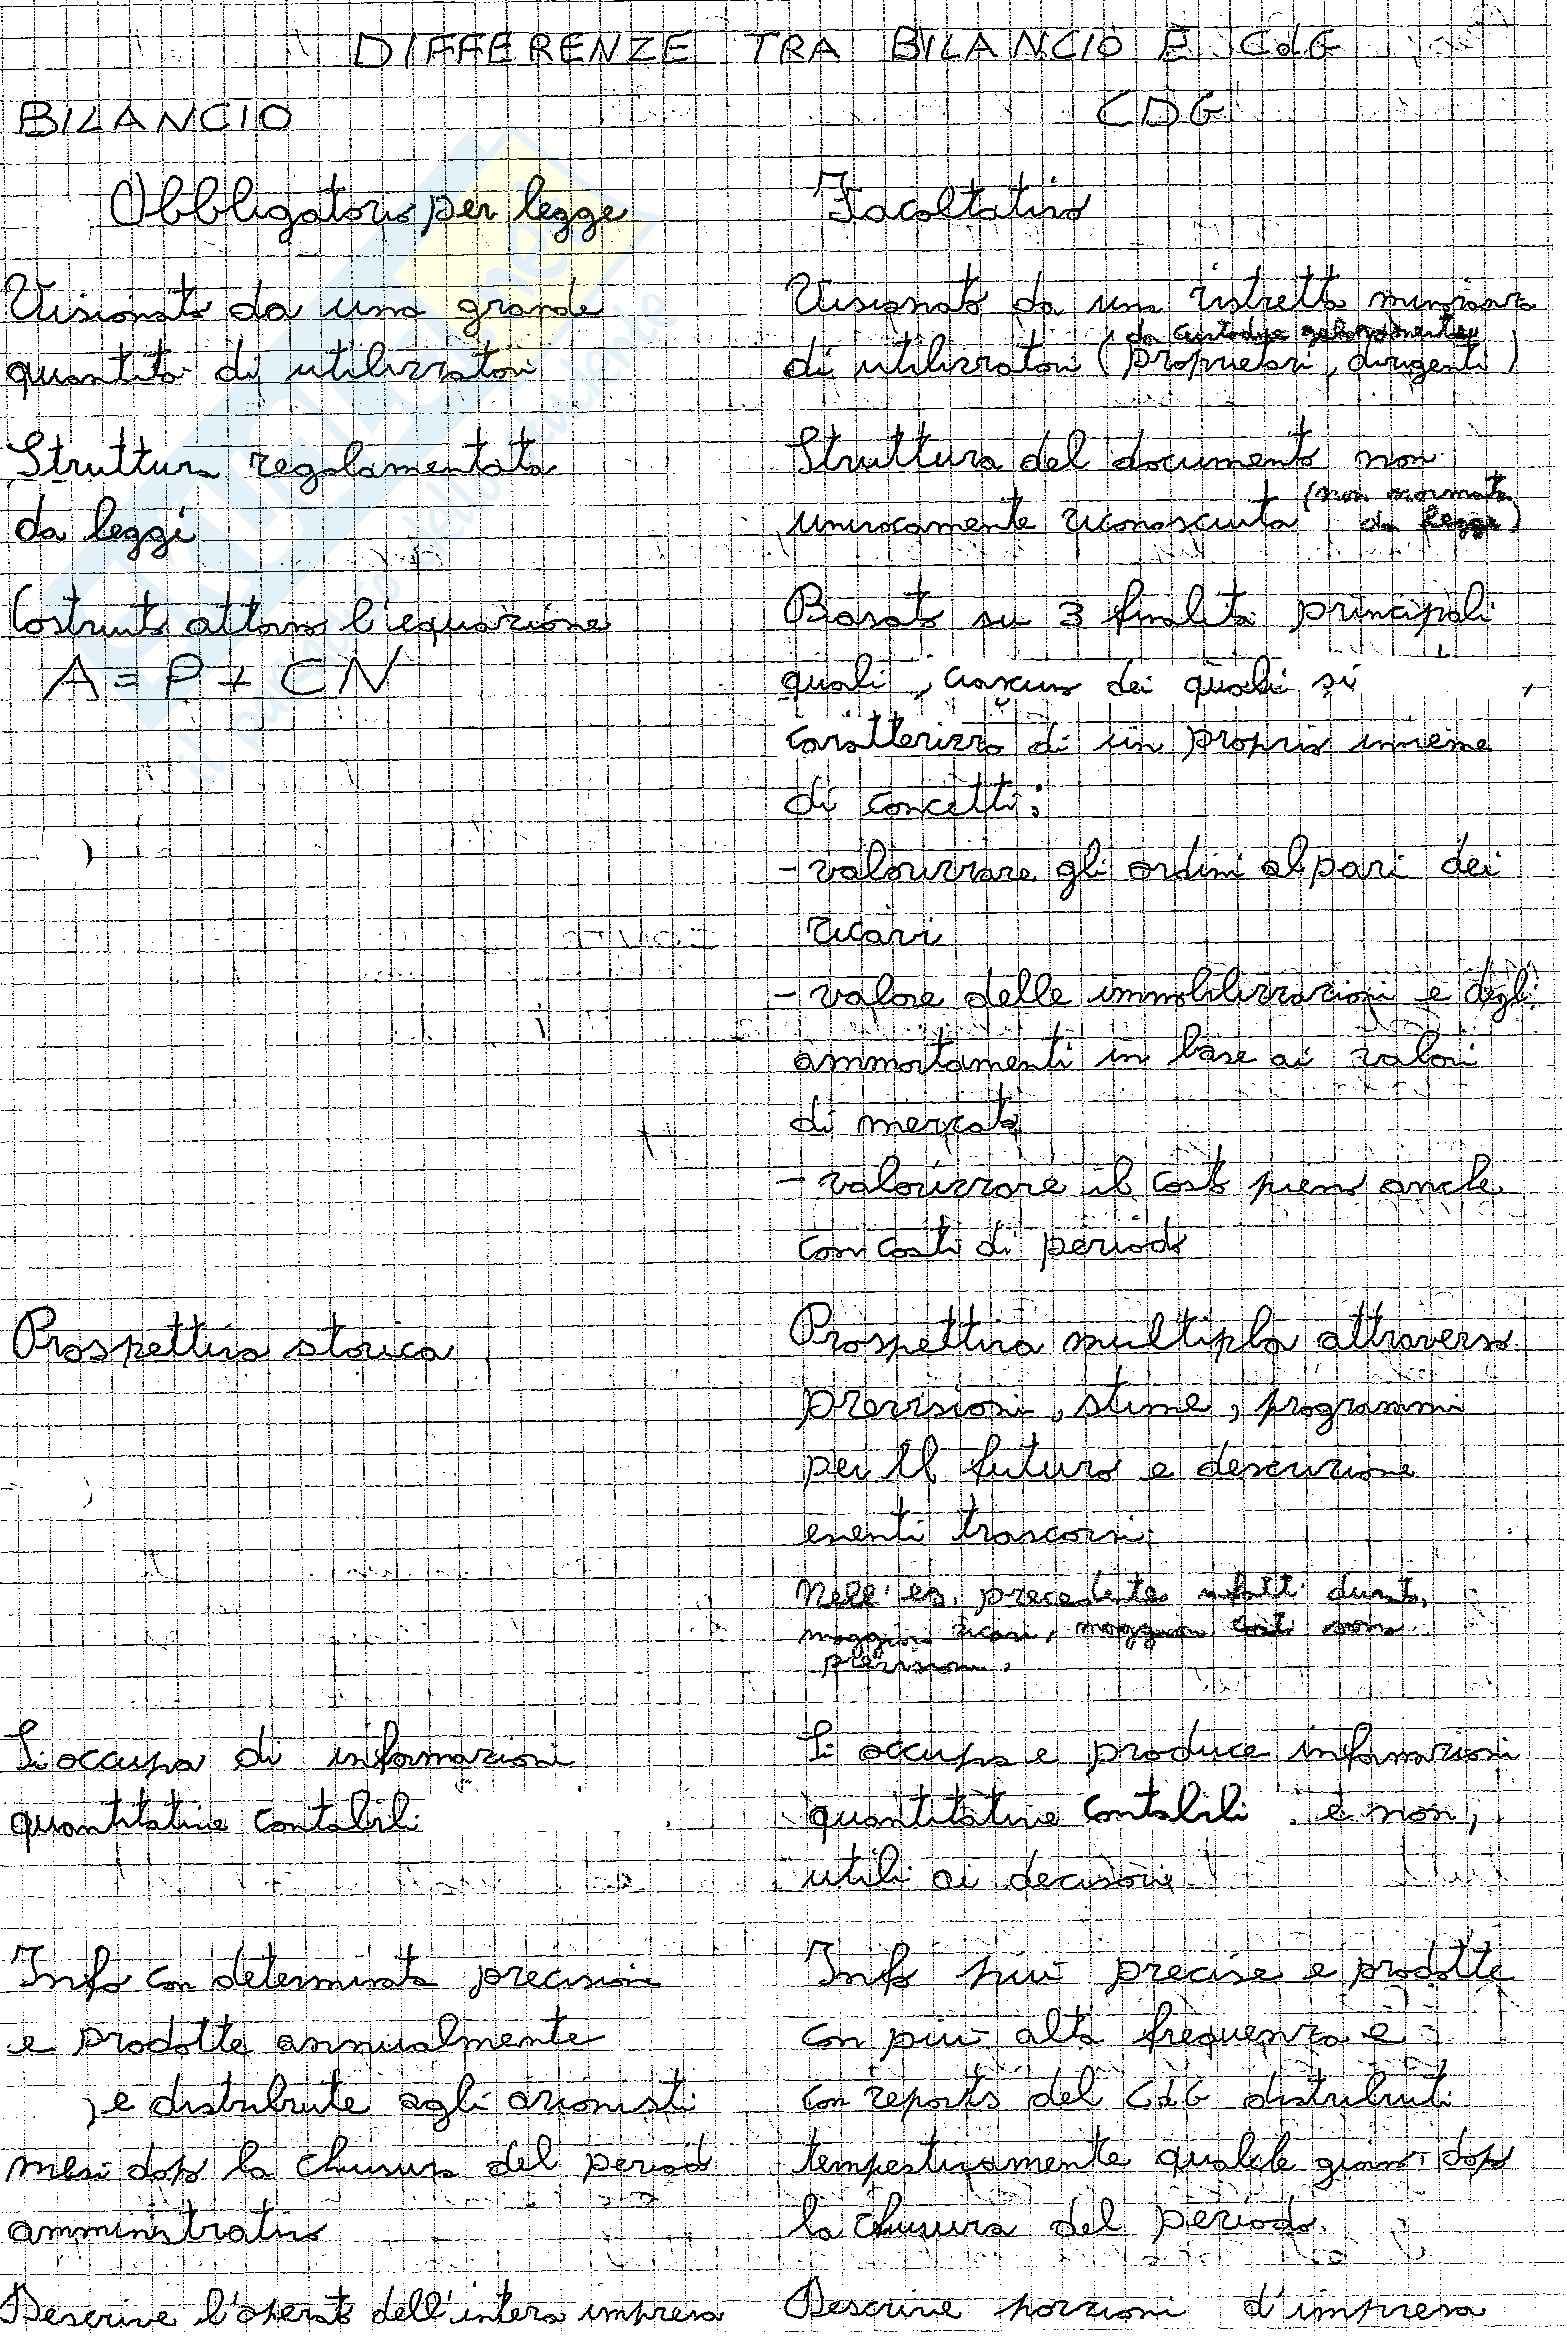 DIFFERENZE TRA BILANCIO E CdG
BILANCIO
CDG
Obbligatorio per legge
Facoltativo
Visionato da una grande
quantità di utilizzatori
Visionato da un ristretto
da custodire gelosamente
di utilizzatori (proprietari, dirigenti)
Struttura regolamentata
da leggi
Struttura del documento non
univocamente riconosciuta (non normata
da legge)
Costruito attorno l'equazione
A = P + CN
Basato su 3 finalità principali
quali, ciascuno dei quali si
caratterizza di un proprio insieme
di concetti:
- valorizzare gli ordini al pari dei
ricavi
- valore delle immobilizzazioni e degli
ammortamenti in base ai valori
di mercato
- valorizzare il costo pieno anche
con costi di periodo
Prospettiva storica
Prospettiva multipla attraverso
previsioni, stime, programmi
per il futuro e descrizione
eventi trascorsi
Nell'es. precedente infatti
maggiori ricavi, maggiori costi sono
previsioni.
Si occupa di informazioni
quantitative contabili
Si occupa e produce informazioni
quantitative contabili e non,
utili ai decisori
Info con determinata precisione
e prodotte annualmente
, e distribuite agli azionisti
mesi dopo la chiusura del periodo
amministrativo
Info più precise e prodotte
con più alta frequenza e
con reports del CdG distribuiti
tempestivamente qualche giorno dopo
la chiusura del periodo.
Descrive l'operato dell'intera impresa
Descrive porzioni d'impresa